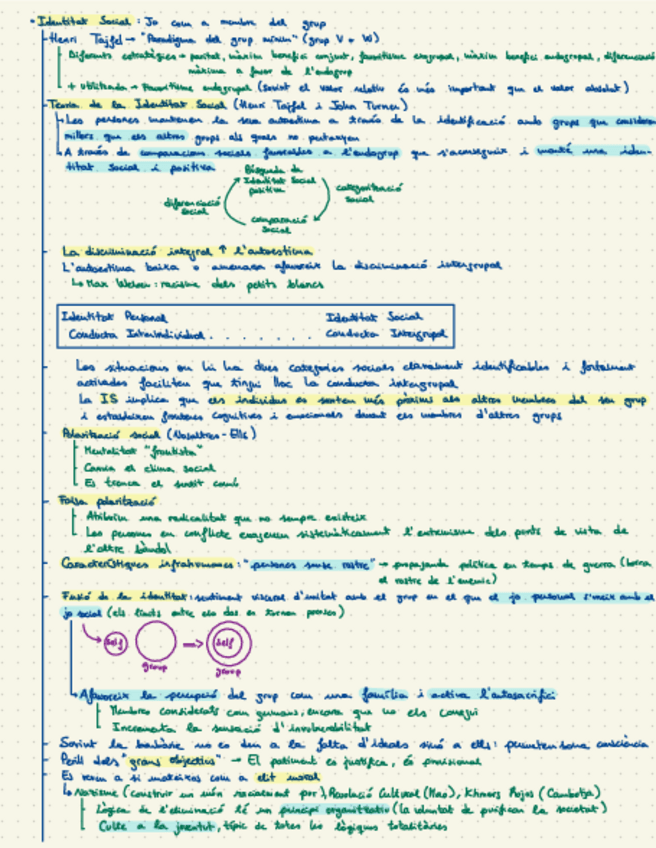 Identitat Social: Jo com a membre del grup
Henri Tajfel → "Paradigma del grup mínim" (grup V + W)
Diferents estratègies → paritat, màxim benefici conjunt, favoritisme exogrupal, màxim benefici endogrupal, diferenciació
màxima a favor de l'endogrup
+ utilitzada → Favoritisme endogrupal (sovint el valor relatiu és més important que el valor absolut)
Teoria de la Identitat Social (Henri Tajfel i John Turner)
Les persones mantenen la seva autoestima a través de la identificació amb grups que consideren
millors que els altres grups als quals no pertanyen
A través de comparacions socials favorables a l'endogrup que s'aconsegueix i manté una iden-
titat social i positiva
Búsqueda de
Identitat Social
positiva
categorització
social
diferenciació
social
comparació
social
La discriminació integral ↑ l'autoestima
L'autoestima baixa o amenaça afavoreix la discriminació intergrupal
↳ Max Weber: racisme dels petits blancs
Identitat Personal Identitat Social
Conducta Interindividual . . . . . . . Conducta Intergrupal
Les situacions on hi ha dues categories socials clarament identificables i fortament
activades faciliten que tingui lloc la conducta intergrupal
La IS implica que els individus es senten més pròxims als altres membres del seu grup
i estableixen fronteres cognitives i emocionals davant els membres d'altres grups
Polarització social (Nosaltres - Ells)
Mentalitat "frontista"
Canvia el clima social
Es trenca el sentit comú
Falsa polarització
Atribuïm una radicalitat que no sempre existeix
Les persones en conflicte exageren sistemàticament l'extremisme dels punts de vista de
l'altre bàndol
Característiques infrahumanes: "persones sense rostre" → propaganda política en temps de guerra (borra
el rostre de l'enemic)
Fusió de la identitat: sentiment visceral d'unitat amb el grup en el que el jo personal s'uneix amb el
jo social (els límits entre els dos es tornen porosos)
self
group
self
group
Afavoreix la percepció del grup com una família i activa l'autosacrifici
Membres considerats com germans, encara que no els conegui
Incrementa la sensació d'invulnerabilitat
Sovint la barbàrie no es deu a la falta d'ideals sinó a ells: permeten bona consciència
Perill dels "grans objectius" → El patiment es justifica, és provisional
Es veuen a si mateixos com a elit moral
↳ Nazisme (construir un món racialment pur), Revolució Cultural (Mao), Khmers Rojos (Cambotja)
Lògica de l'eliminació té un principi organitzatiu (la voluntat de purificar la societat)
Culte a la joventut, típic de totes les lògiques totalitàries